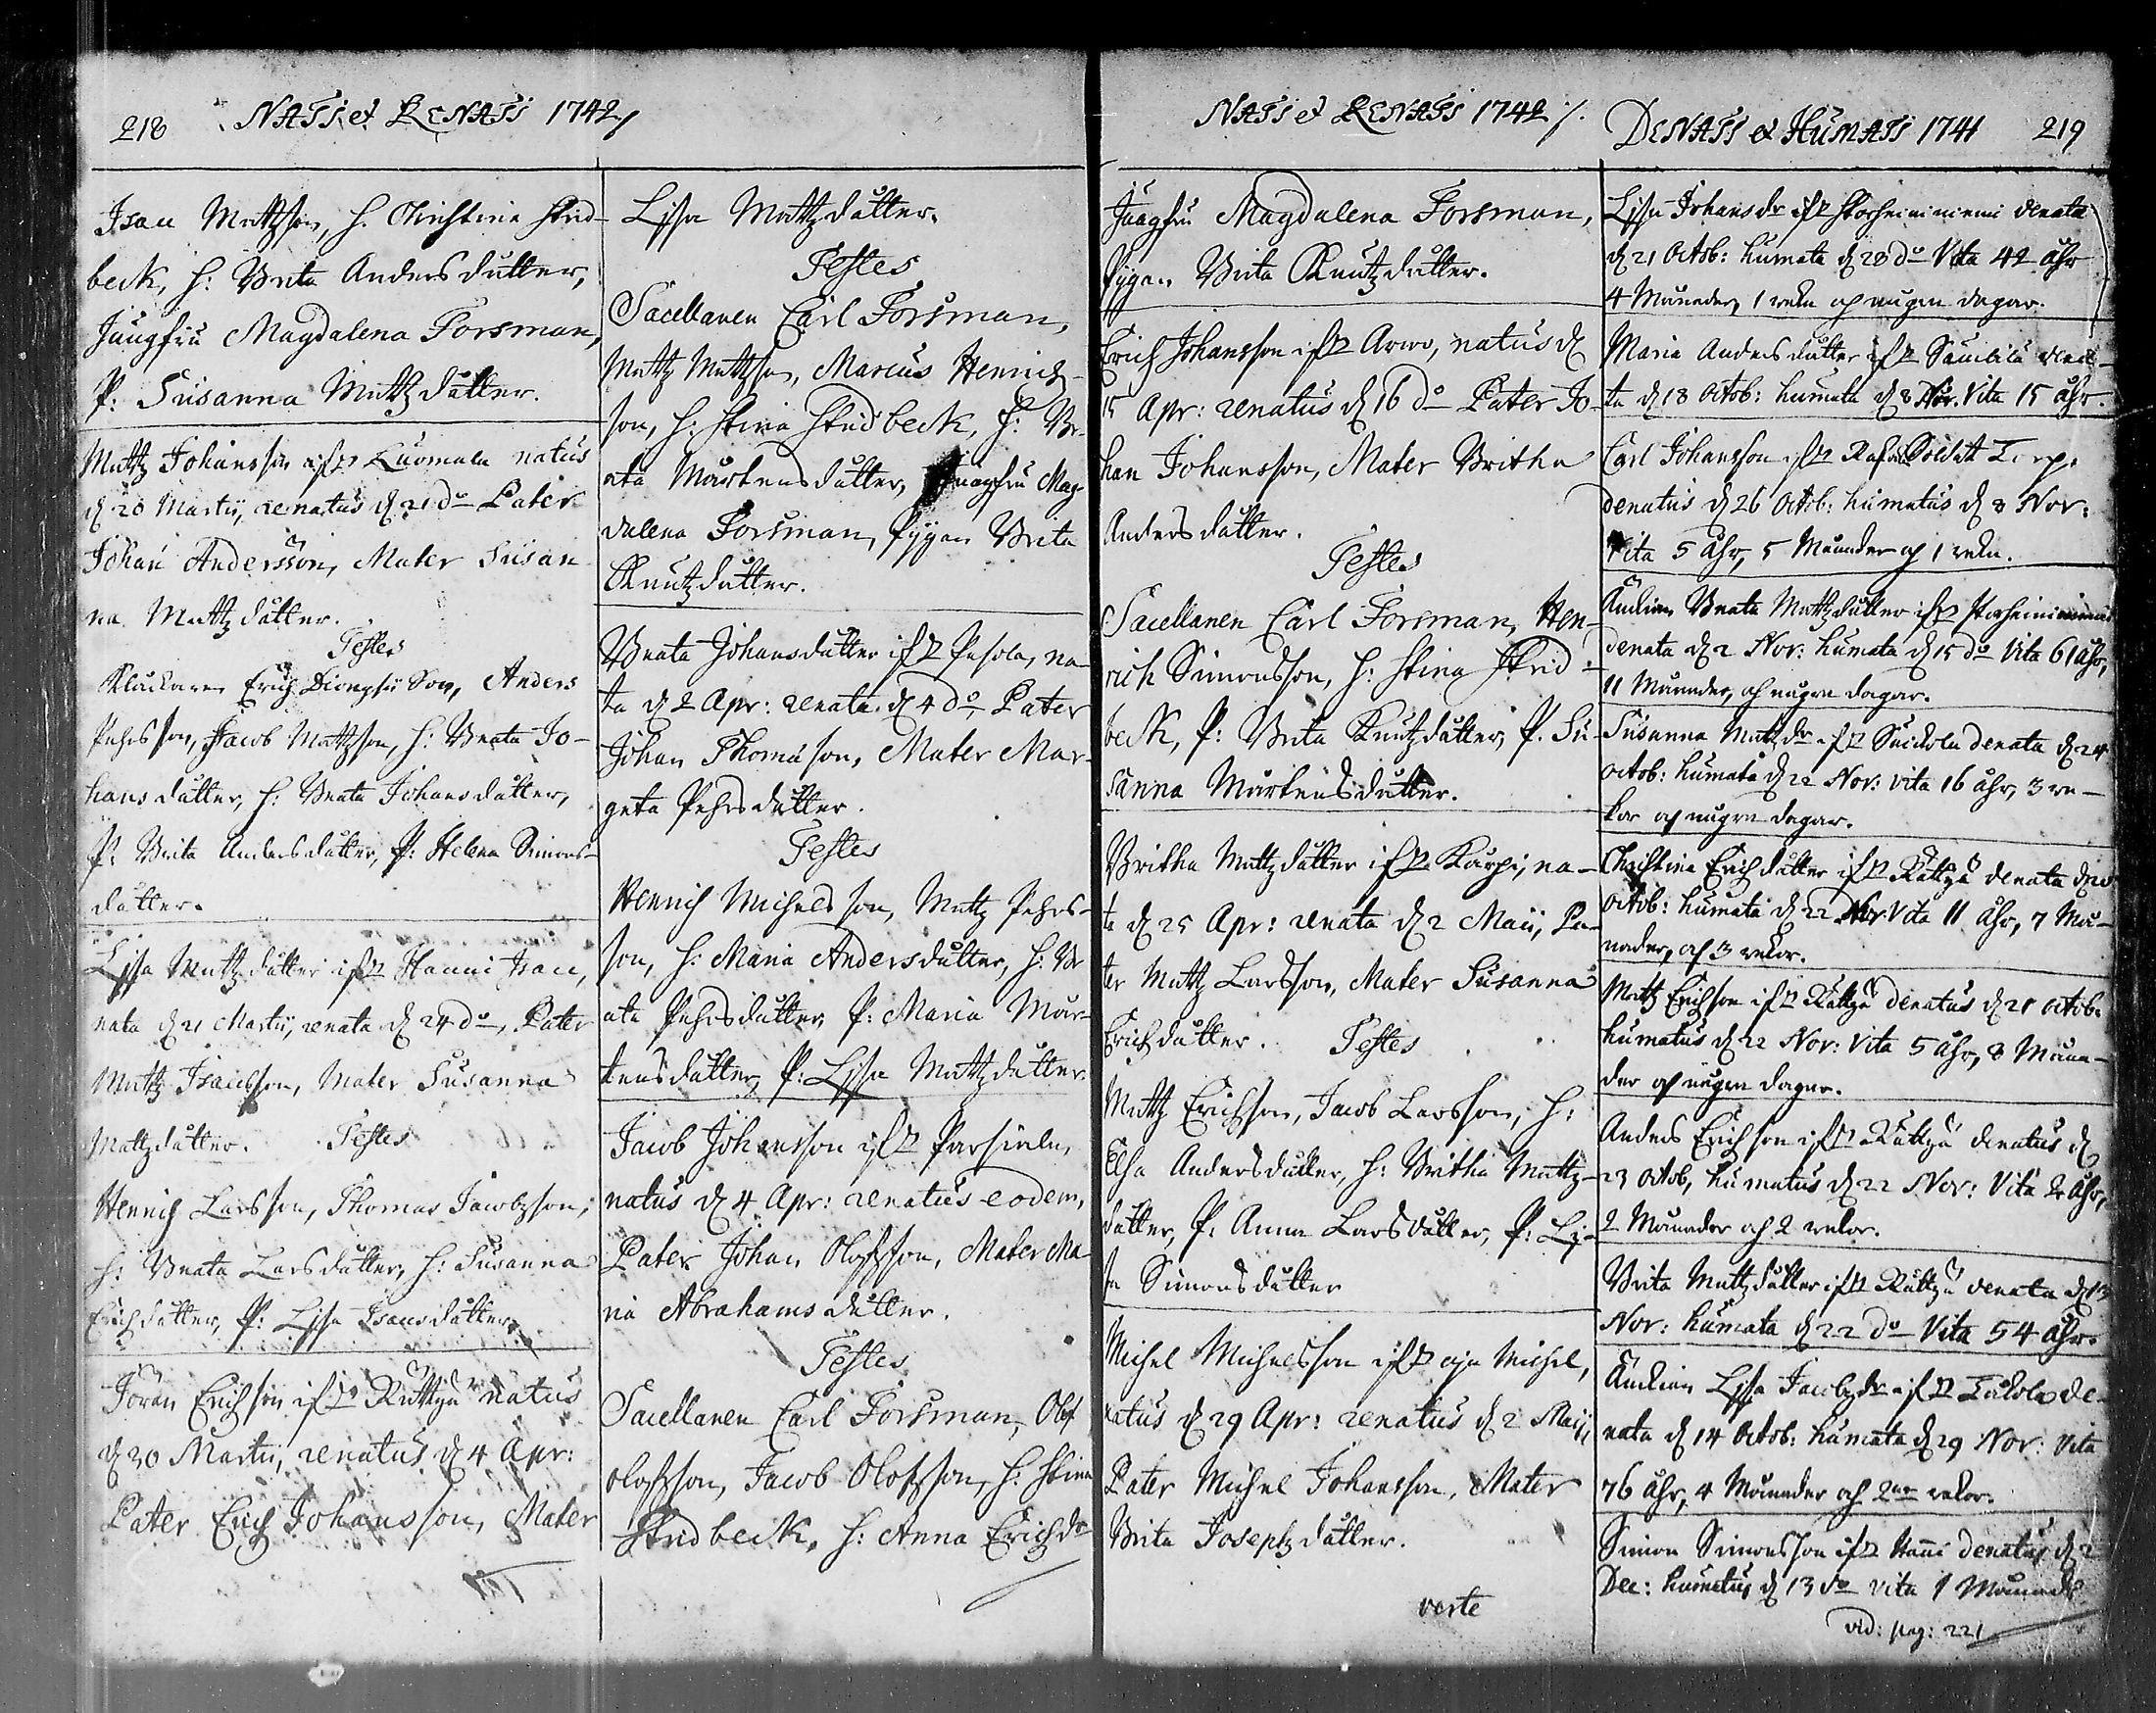 218 NATI et RENATI 1742
Isac Mattzson, h. Christina Strid-
beck, h: Brita Andersdåtter,
Jungfru Magdalena Forsman,
P: Susanna Mattzdåtter.
Mattz Johansson ifr: Luomala natus
d 20 Martii, renatus d 21 do Pater
Johan Andersson, Mater Susan
na Mattzdåtter.
Testes
Klåckaren Erich Dionysii Son, Anders
Pehrsson, Jacob Mattzson, h: Beata Jo-
hansdåtter, h: Beata Johansdåtter,
P: Brita Andersdåtter, P: Helena Simons-
dåtter.
Lisa Mattzdåtter ifr: Hanni Isac,
nata d 21 Martii, renata d 24 do, Pater
Mattz Isacsson, Mater Susanna
Mattzdåtter. Testes
Henrich Larsson, Thomas Jacobzson,
h: Beata Larsdåtter, h: Susanna
Erichdåtter, P: Lisa Isacsdåtter.
Jöran Erichson ifr: natus
d 30 Martii, renatus d 4 Apr:
Pater Erich Johansson, Mater
Lissa Mattzdåtter.
Testes
Sacellanen Carl Forsman,
Mattz Mattzson, Marcus Henrich-
son, h: Stina Stridbeck, h: Be-
ata Mårtensdåtter, Jungfru Mag-
dalena Forsman, Pygan Brita
Knutzdåtter.
Beata Johansdåtter ifr: Pesola, na
ta d 2 Apr: renata d 4 do, Pater
Johan Thomason, Mater Mar-
geta Pehrsdåtter.
Testes
Henrich Michelsson, Mattz Pehrs-
son, h: Maria Andersdåtter, h: Be
ata Pehrsdåtter, P: Maria Mår-
tensdåtter, P: Lisa Mattzdåtter.
Jacob Johansson ifr:
natus d 4 Apr: renatus eodem,
Pater Johan Olofsson, Mater Ma-
ria Abrahamsdåtter.
Testes
Sacellanen Carl Forsman, Olof
Olofsson, Jacob Olofsson, h: Stina
Stridbeck, h: Anna Erichdr
NATI et RENATI 1742 /.
Jungfru Magdalena Forsman,
Pygan Brita Knutzdåtter.
Erich Johansson ifr: Arwo, natus d
15 Apr: renatus d 16 do Pater Jo-
han Johansson, Mater Britha
Andersdåtter.
Testes
Sacellanen Carl Forsman, Hen-
rich Simonsson, h: Stina Strid-
beck, P: Brita Knutzdåtter, P. Su-
sanna Mårtensdåtter.
Britha Mattzdåtter ifr: Kaupi, na-
ta d 25 Apr: renata d 2 Maii, Pa-
ter Mattz Larsson, Mater Susanna
Erichdåtter. Testes
Mattz Erichson, Jacob Larsson, h:
Elsa Andersdåtter, h: Britha Mattz-
dåtter, P. Anna Larsdåtter, P: Li-
sa Simonsdåtter
Michel Michelsson ifr: Michel,
natus d 29 Apr: renatus d 2 Maii,
Pater Michel Johansson, Mater
Brita Josephzdåtter.
verte
DENATI & HUMATI 1741 219
Lissa Johansdr ifr: Storheininiemi denata
d 21 Octob: humata d 28 do Vita 42 åhr
4 Månader, 1 weka och någre dagar.
Maria Andersdåtter ifr: dena-
ta d 18 Octob: humata d 8 Nov. Vita 15 åhr.
Carl Johansson ifr: Soldat Torp.
denatus d 26 Octob: humatus d 8 Nov:
Vita 5 åhr, 5 Månader och 1 weka.
Änckian Beata Mattzdåtter ifr: Storheininiemi
denata d 2 Nov: humata d 15 do Vita 61 åhr,
11 Månader, och någre dagar.
Susanna Mattzdr ifr: denata d 24
Octob: humata d 22 Nov: vita 16 åhr, 3 we-
kor och någre dagar.
Christina Erichdåtter ifr: denata d 20
Octob: humata d 22 Nov: Vita 11 åhr, 7 Må-
nader, och 3 wekor.
Mattz Erichson ifr: denatus d 21 Octob:
humatus d 22 Nov: Vita 5 åhr, 8 Måna-
der och någre dagar.
Anders Erichson ifr: denatus d
23 Octob, humatus d 22 Nov: Vita 2 åhr,
2 Månader och 2 wekor.
Brita Mattzdåtter ifr: denata d 13
Nov: humata d 22 do Vita 54 åhr.
Änckian Lissa Jacobzdr ifr: de-
nata d 14 Octob: humata d 29 Nov: Vita
76 åhr, 4 Månader och 2ne wekor.
Simon Simonsson ifr: Hanni denatus d 2
Dec: humatus d 13 do vita 1 Månad
vid: pag: 221